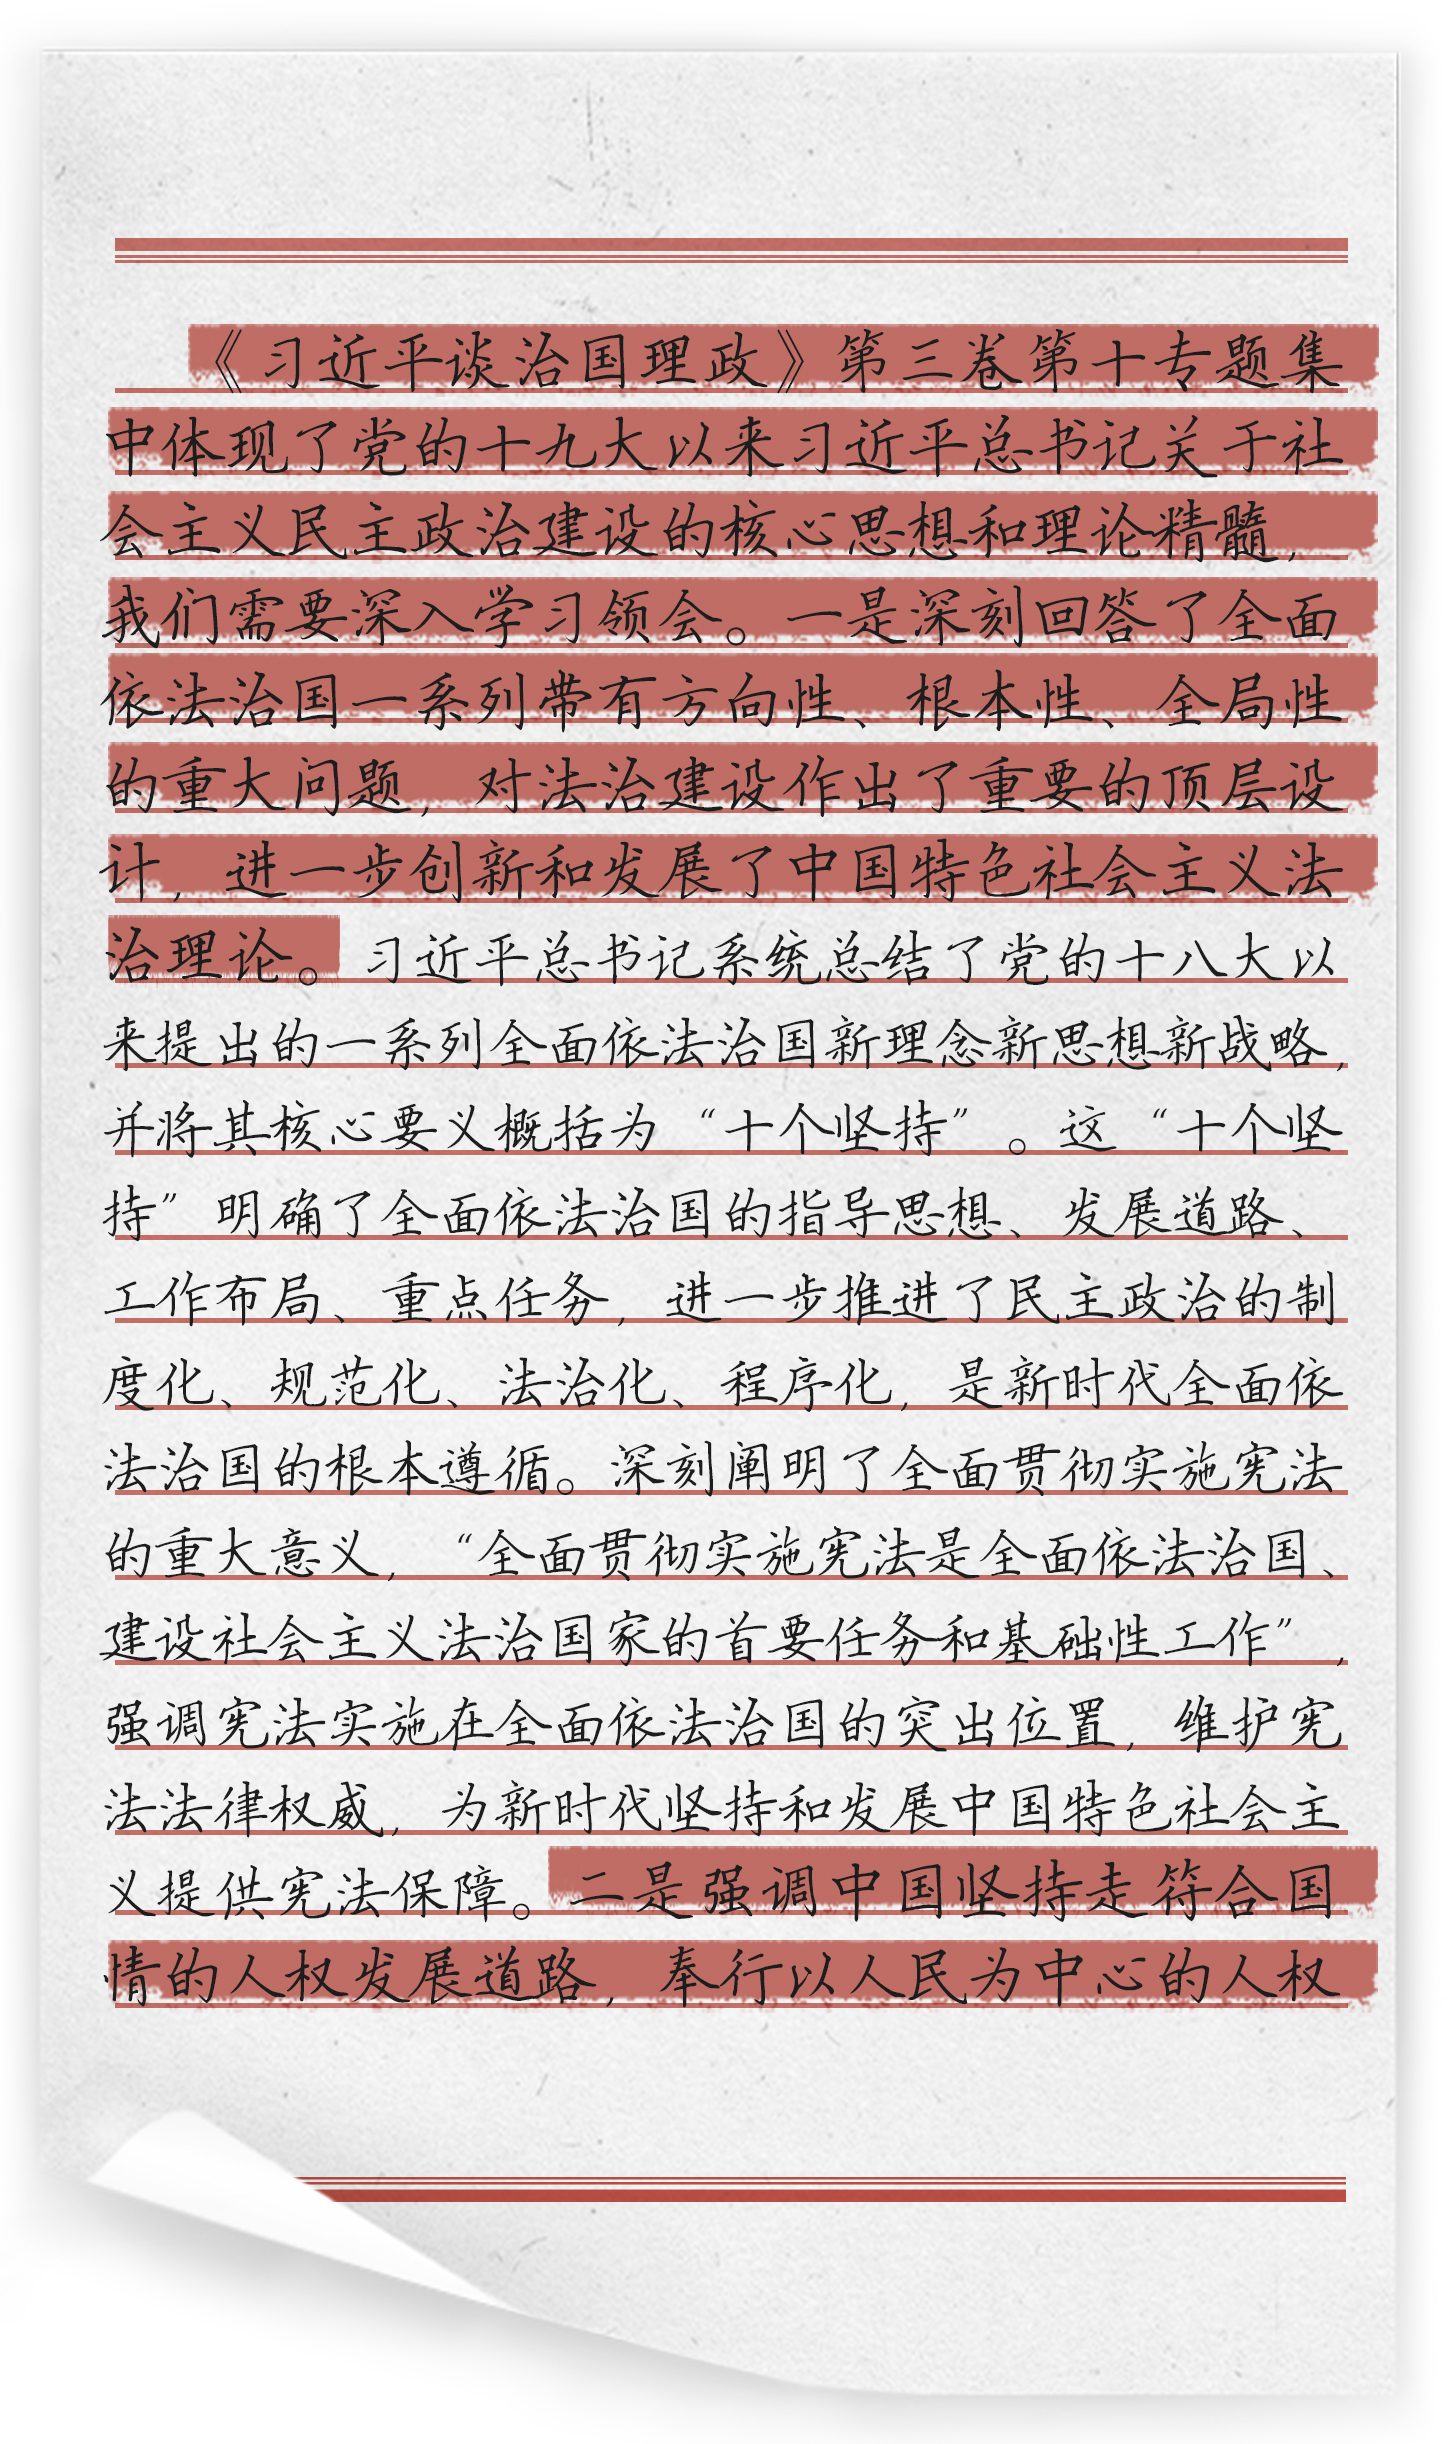 《习近平谈治国理政》第三卷第十专题集
中体现了党的十九大以来习近平总书记关于社
会主义民主政治建设的核心思想和理论精髓，
我们需要深入学习领会。一是深刻回答了全面
依法治国一系列带有方向性、根本性、全局性
的重大问题，对法治建设作出了重要的顶层设
计，进一步创新和发展了中国特色社会主义法
治理论。习近平总书记系统总结了党的十八大以
来提出的一系列全面依法治国新理念新思想新战略，
并将其核心要义概括为“十个坚持”。这“十个坚
持”明确了全面依法治国的指导思想、发展道路、
工作布局、重点任务，进一步推进了民主政治的制
度化、规范化、法治化、程序化，是新时代全面依
法治国的根本遵循。深刻阐明了全面贯彻实施宪法
的重大意义，“全面贯彻实施宪法是全面依法治国、
建设社会主义法治国家的首要任务和基础性工作”，
强调宪法实施在全面依法治国的突出位置，维护宪
法法律权威，为新时代坚持和发展中国特色社会主
义提供宪法保障。二是强调中国坚持走符合国
情的人权发展道路，奉行以人民为中心的人权